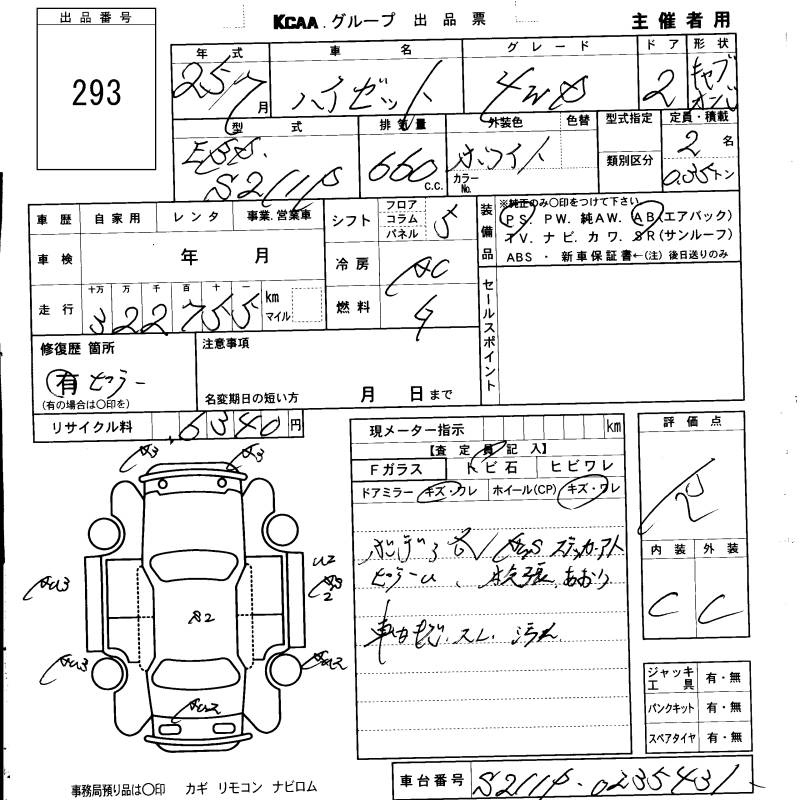 出品番号
293
KCAA.グループ 出品票
主催者用
年式 車名 グレード ドア 形状
25/7月 ハイゼット 4WD 2 キャブオーバ
型式 排気量 外装色 色替 型式指定 定員・積載
EBD.
S211P 660 C.C. ホワイト カラーNo. 類別区分 2名 0.35トン
車歴 自家用 レンタ 事業.営業車
車検 年 月
走行 十万 万 千 百 十 一
322755 km マイル
シフト フロア コラム パネル 5
冷房 AC
燃料
装備品
※純正のみ○印をつけて下さい
PS. PW. 純AW. AB(エアバック)
TV. ナビ. カワ. SR(サンルーフ)
ABS ・ 新車保証書←(注)後日送りのみ
セールスポイント
修復歴 箇所
有 ピラー
(有の場合は○印を)
注意事項
名変期日の短い方 月 日まで
リサイクル料 6340円
現メーター指示 km
【査定員記入】
Fガラス トビ石 ヒビワレ
ドアミラー キズ・ワレ ホイール(CP) キズ・ワレ
ステッカーアト
ピラーU、 あおり
スレ 汚れ
評価点
R
内装 外装
C C
A3 A3
AU3 U2
2
A2
AU3 AU2
AU2
ジャッキ工具 有・無
パンクキット 有・無
スペアタイヤ 有・無
事務局預り品は○印 カギ リモコン ナビロム
車台番号 S211P-0235431